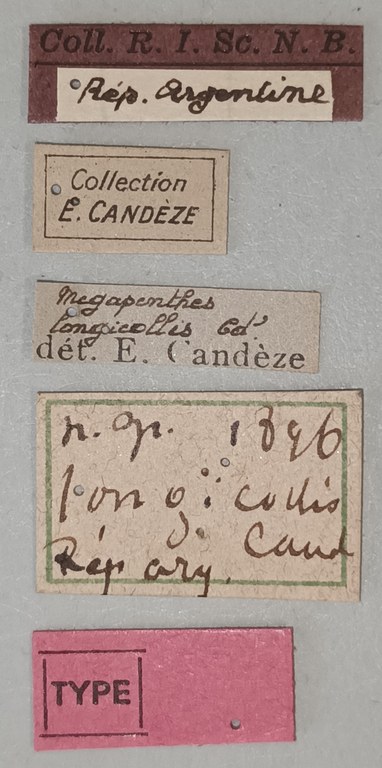 Coll. R. I. Sc. N. B.
Rép. Argentine
Collection
E. CANDÈZE
Megapenthes
longicollis Cd
dét. E. Candèze
n. sp. 1896
longicollis
Cand
Rép arg.
TYPE